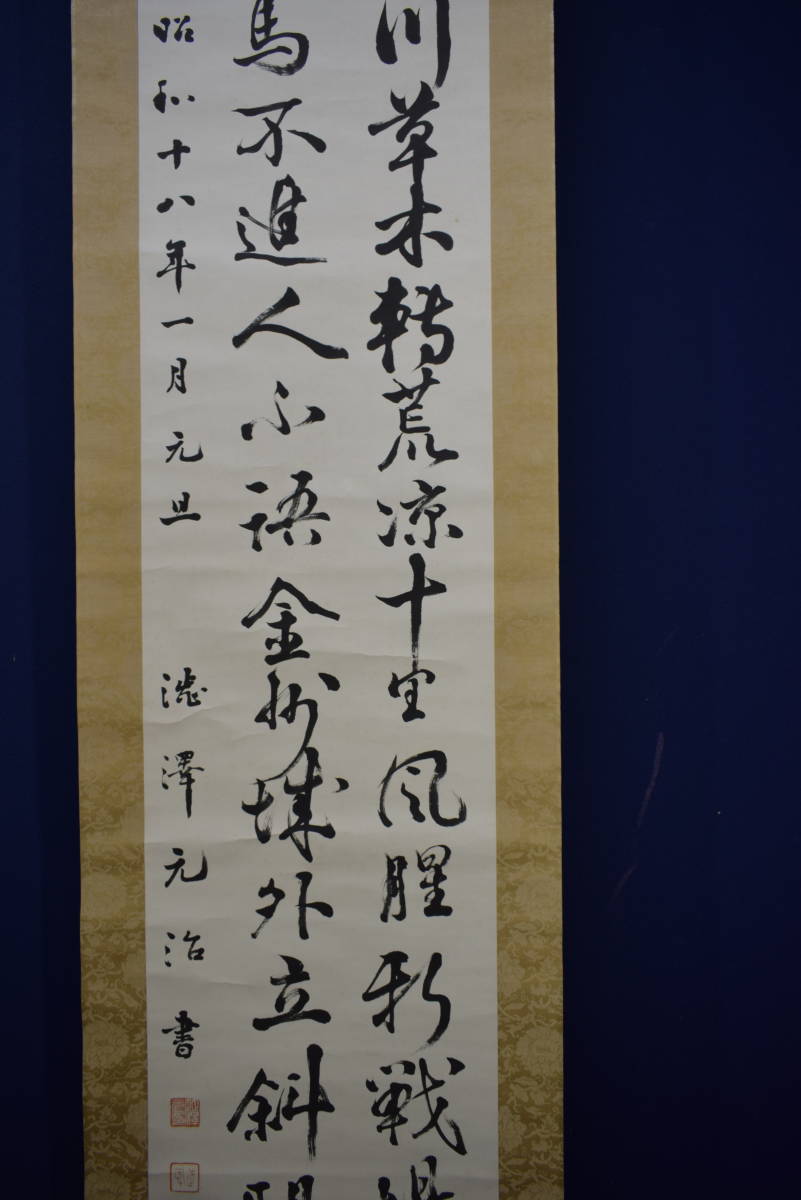 川草木轉荒凉十里風腥新戦場
馬不進人不語金州城外立斜陽
昭和十八年一月元旦 澁澤元治書